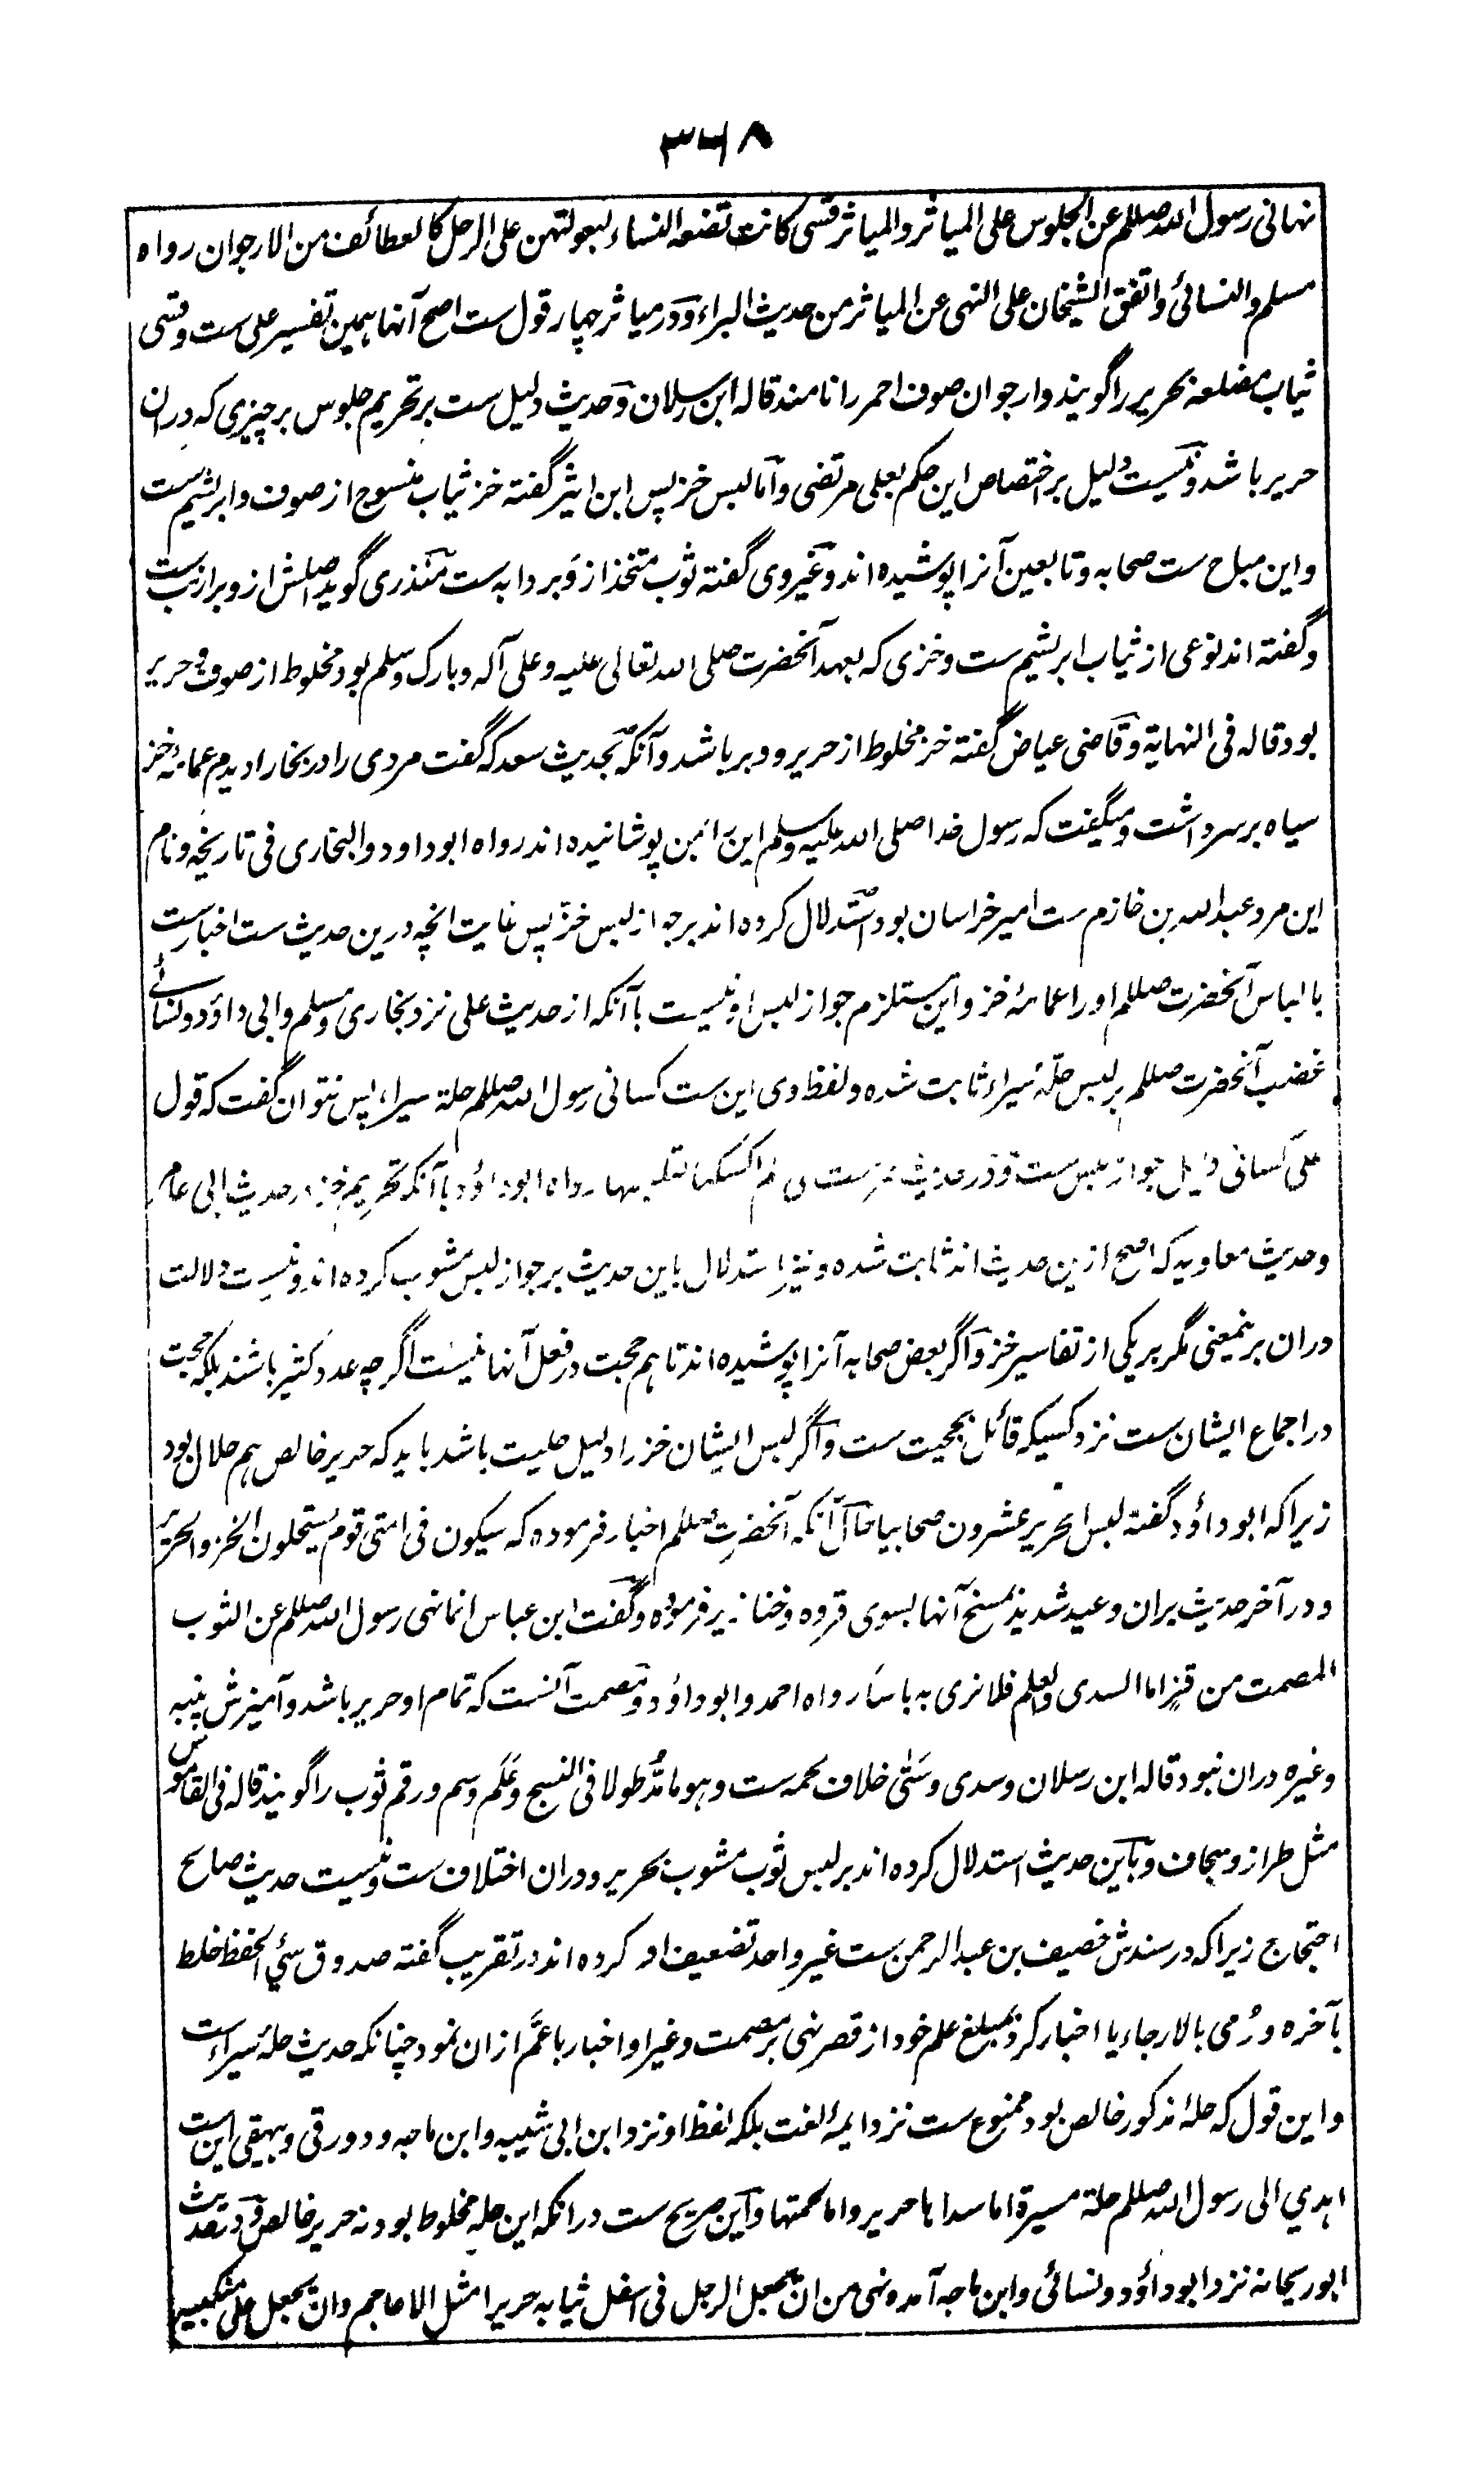 ۳۶۸
نہانی رسول اللہ صللم عن الجلوس علی المیاثر والمیاثر قسی کانت تصنعہ النساء لبعولتهن علی الرحل کالعطائف من الارجوان رواہ
مسلم والنسائی واتفق الشیخان علی النہی عن المیاثر من حدیث البراء ودر میاثر چہار قول ست اصح آنہا ہمین تفسیر علی ست وقسی
ثیاب مضلعہ بحریر را گویند وارجوان صوف احمر را نامند قالہ ابن رسلان وحدیث دلیل ست بر تحریم جلوس بر چیزی کہ دران
حریر باشد ونیست دلیل بر اختصاص این حکم بعلی مرتضی واما لبس خز پس ابن اثیر گفتہ خز ثیاب منسوج از صوف وابریشم ست
واین مباح ست صحابہ وتابعین آنرا پوشیدہ اند وغیر وی گفتہ ثوب متخذ از وبر دابہ ست منذری گوید اصلش از وبر ارنب ست
وگفتہ اند نوعی از ثیاب ابریشم ست وخزی کہ بعہد آنحضرت صلی اللہ تعالی علیہ وعلی آلہ وبارک وسلم بود مخلوط از صوف وحریر
بود قالہ فی النہایۃ وقاضی عیاض گفتہ خز مخلوط از حریر ووبر باشد وآنکہ بحدیث سعد کہ گفت مردی را در بخارا دیدم عمامۂ خز
سیاہ بر سر داشت ومیگفت کہ رسول خدا صلی اللہ علیہ وسلم این را بمن پوشانیدہ اند رواہ ابو داود والبخاری فی تاریخہ ونام
این مرد عبداللہ بن خازم ست امیر خراسان بود استدلال کردہ اند بر جواز لبس خز پس غایت انچہ درین حدیث ست اخبار ست
بالباس آنحضرت صللم او را عمامۂ خز واین مستلزم جواز لبس او نیست باآنکہ از حدیث علی نزد بخاری ومسلم وابی داؤد ونسائے
غضب آنحضرت صللم بر لبس حلۂ سیراء ثابت شدہ ولفظ وی این ست کسانی رسول اللہ صللم حلۃ سیراء پس نتوان گفت کہ قول
علی کسانی دلیل جواز لبس ست ودر حدیث عمر ست انی لم اکسکہا لتلبسہا رواہ ابو داؤد باآنکہ تحریم خز در حدیث ابی عامر
وحدیث معاویہ کہ اصح ازین حدیث اند ثابت شدہ ونیز استدلال باین حدیث بر جواز لبس مشوب کردہ اند ونیست دلالت
دران برینمعنی مگر بر یکی از تفاسیر خز واگر بعض صحابہ آنرا پوشیدہ اند تا ہم حجت در فعل آنہا نیست اگرچہ عدد کثیر باشند بلکہ حجت
در اجماع ایشان ست نزد کسیکہ قائل بحجیت ست واگر لبس ایشان خز را دلیل حلیت باشد باید کہ حریر خالص ہم حلال بود
زیراکہ ابو داؤد گفتہ لبس الحریر عشرون صحابیا حال آنکہ آنحضرت صللم اخبار فرمودہ کہ سیکون فی امتی قوم یستحلون الخز والحریر
ودر آخر حدیث بران وعید شدید بمسخ آنہا بسوی قردہ وخنازیر فرمودہ وگفت ابن عباس انما نہی رسول اللہ صللم عن الثوب
المصمت من قز اما السدی والعلم فلا نری بہ باسا رواہ احمد وابو داؤد ومصمت آنست کہ تمام او حریر باشد وآمیزش پنبہ
وغیرہ دران نبود قالہ ابن رسلان وسدی وستی خلاف لحمہ ست وہو ما مد طولا فی النسج وعلم وسم ورقم ثوب را گویند قالہ فی القاموس
مثل طراز وسجاف وباین حدیث استدلال کردہ اند بر لبس ثوب مشوب بحریر ودران اختلاف ست ونیست حدیث صالح
احتجاج زیراکہ در سندش خصیف بن عبدالرحمن ست غیر واحد تضعیف او کردہ اند در تقریب گفتہ صدوق سیئ الحفظ خلط
بآخرہ ورُمی بالارجاء یا اخبار کرد بمبلغ علم خود از قصر نہی بر مصمت وغیر او اخبار باعم ازان نمود چنانکہ حدیث حلۂ سیراء ست
واین قول کہ حلۂ مذکور خالص بود ممنوع ست نزد ایمۂ لغت بلکہ لفظ او نزد ابن ابی شیبہ وابن ماجہ ودورقی وبیہقی این ست
اہدی الی رسول اللہ صللم حلۃ مسیرۃ اما سداہا حریر واما لحمتہا واین صریح ست درانکہ این حلہ مخلوط بود نہ حریر خالص ودر حدیث
ابو ریحانہ نزد ابو داؤد ونسائی وابن ماجہ آمدہ ونہی من ان یجعل الرجل فی اسفل ثیابہ حریرا مثل الاعاجم وان یجعل علی منکبیہ